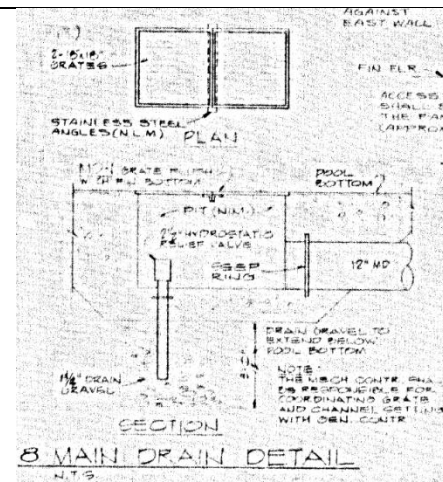 AGAINST
EAST WALL
2-18x18"
GRATES
FIN FLR
ACCESS
SHALL
THE PAN
(APPROX
STAINLESS STEEL
ANGLES (N.I.M.)
PLAN
GRATE FLUSH
BOTTOM
POOL
BOTTOM
PIT (N.I.M.)
HYDROSTATIC
RELIEF VALVE
SEEP
RING
12" MD
DRAIN GRAVEL TO
EXTEND BELOW
POOL BOTTOM
DRAIN
GRAVEL
NOTE
THE MECH CONTR. SHA
BE RESPONSIBLE FOR
COORDINATING GRATE
AND CHANNEL SETTING
WITH GEN. CONTR
SECTION
8 MAIN DRAIN DETAIL
N.T.S.